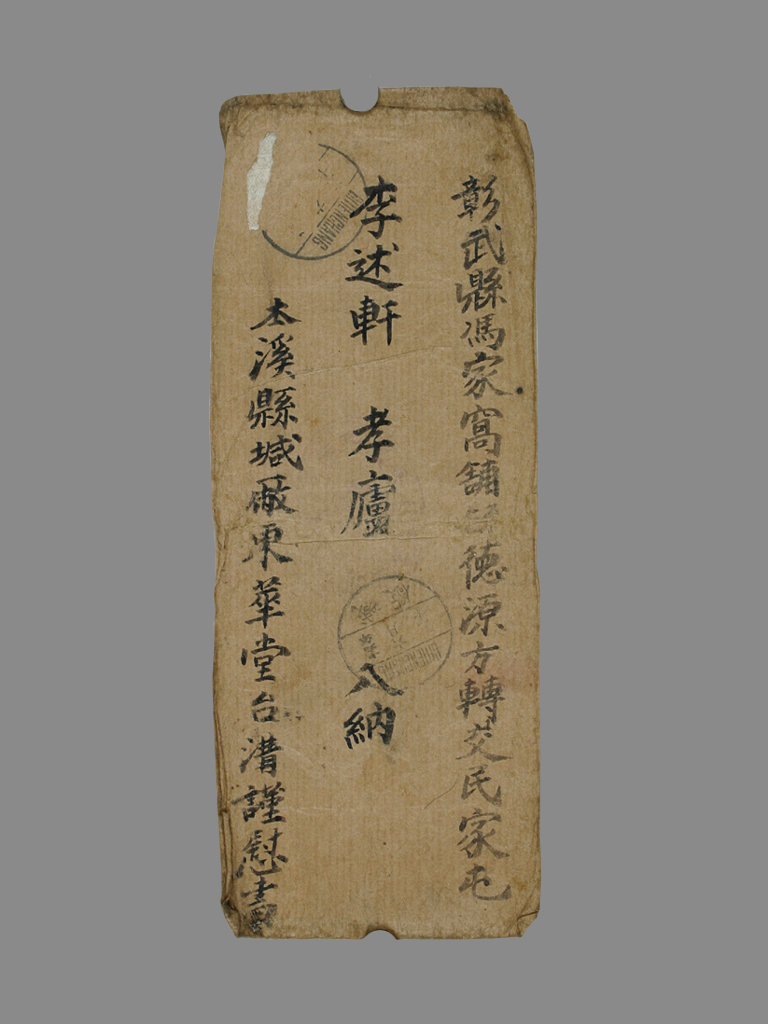 彰武縣馮家窩舗德源方轉交民家屯
李述軒 孝廬 入納
本溪縣堿廠東華堂台湒謹慰書
CHENGJIANG